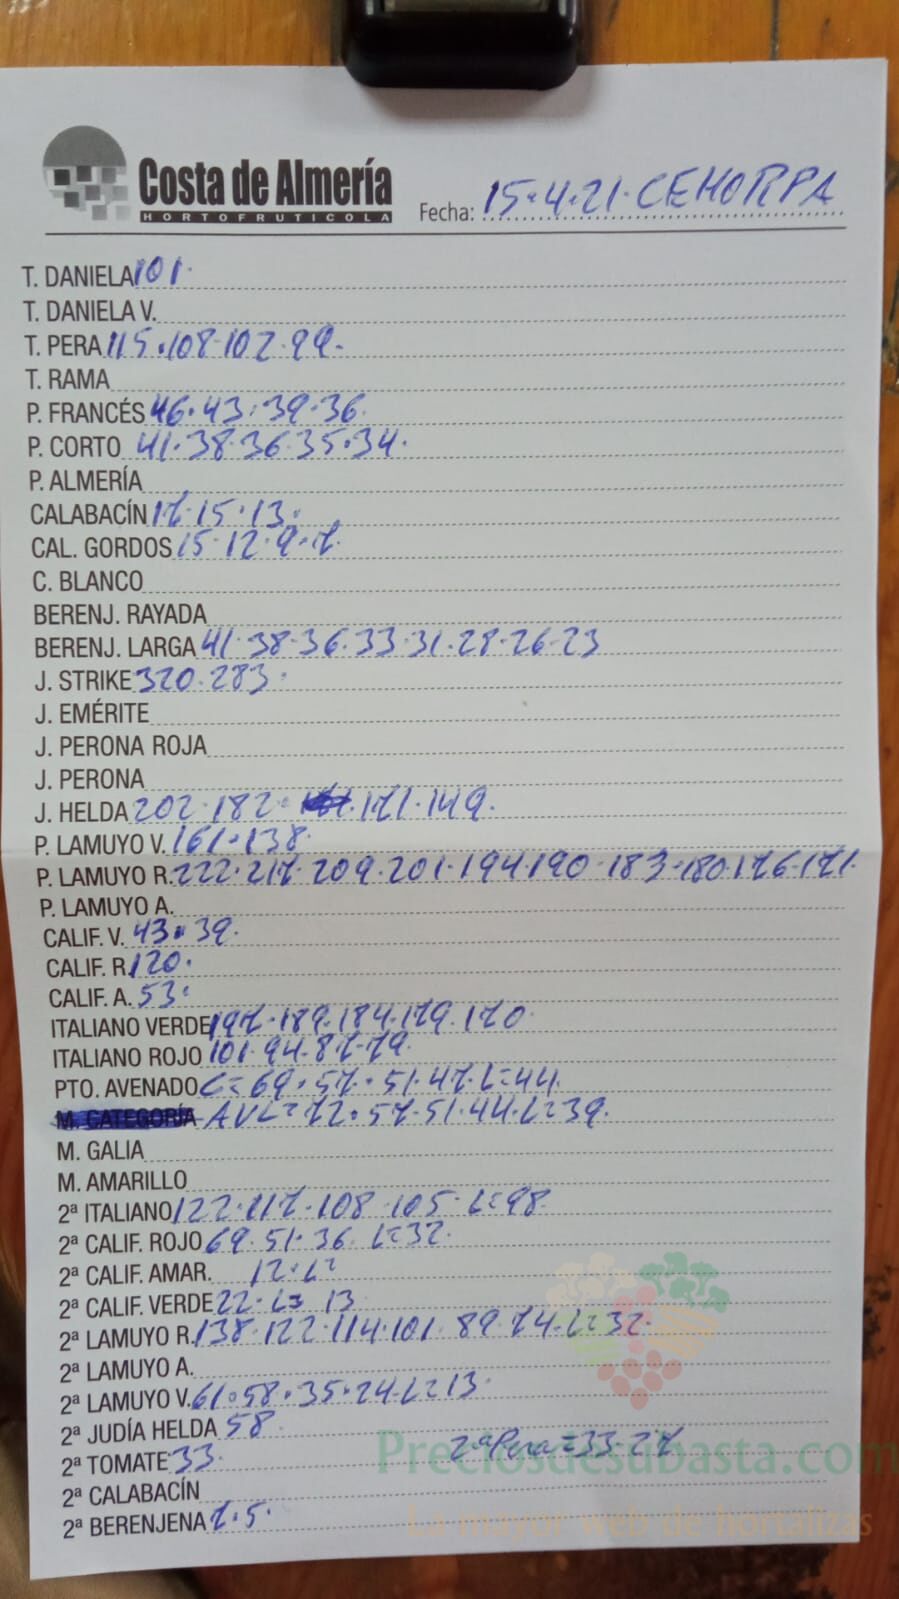 Costa de Almería
HORTOFRUTICOLA
Fecha: 15.4.21.CEHORPA
T. DANIELA 101.
T. DANIELA V.
T. PERA 115.108.102.99.
T. RAMA
P. FRANCÉS 46.43.39.36.
P. CORTO 41.38.36.35.34.
P. ALMERÍA
CALABACÍN 17.15.13.
CAL. GORDOS 15.12.9.7.
C. BLANCO
BERENJ. RAYADA
BERENJ. LARGA 41.38.36.33.31.28.26.23
J. STRIKE 320.283.
J. EMÉRITE
J. PERONA ROJA
J. PERONA
J. HELDA 202.182. 171.149.
P. LAMUYO V. 161.138.
P. LAMUYO R. 222.217.209.201.194.190.183.180.176.171.
P. LAMUYO A.
CALIF. V. 43.39.
CALIF. R. 120.
CALIF. A. 53.
ITALIANO VERDE 197.189.184.179.170.
ITALIANO ROJO 101.94.87.79.
PTO. AVENADO C=69.57.51.47.L=44.
M. CATEGORÍA AVL=72.57.51.44.L=39.
M. GALIA
M. AMARILLO
2ª ITALIANO 122.117.108.105.L=98.
2ª CALIF. ROJO 69.51.36.L=32.
2ª CALIF. AMAR. 12.L=
2ª CALIF. VERDE 22.L=13
2ª LAMUYO R. 138.122.114.101.89.74.L=32.
2ª LAMUYO A.
2ª LAMUYO V. 61.58.35.24.L=13.
2ª JUDÍA HELDA 58.
2ª TOMATE 33. 2ª Pera=33.27
2ª CALABACÍN
2ª BERENJENA 7.5.
Preciosdesubasta.com
La mayor web de hortalizas